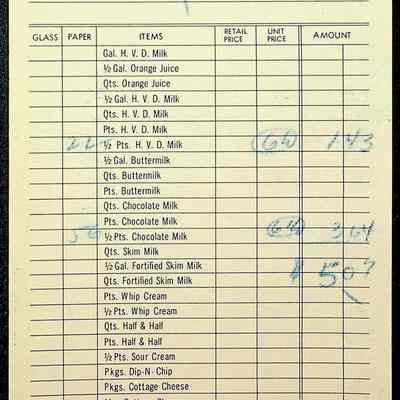 GLASS PAPER ITEMS RETAIL PRICE UNIT PRICE AMOUNT
Gal. H. V. D. Milk
½ Gal. Orange Juice
Qts. Orange Juice
½ Gal. H. V. D. Milk
Qts. H. V. D. Milk
Pts. H. V. D. Milk
22 ½ Pts. H. V. D. Milk 6½ 1 43
½ Gal. Buttermilk
Qts. Buttermilk
Pts. Buttermilk
Qts. Chocolate Milk
Pts. Chocolate Milk
56 ½ Pts. Chocolate Milk 6½ 3 64
Qts. Skim Milk
½ Gal. Fortified Skim Milk $ 5 07
Qts. Fortified Skim Milk
Pts. Whip Cream
½ Pts. Whip Cream
Qts. Half & Half
Pts. Half & Half
½ Pts. Sour Cream
Pkgs. Dip-N-Chip
Pkgs. Cottage Cheese